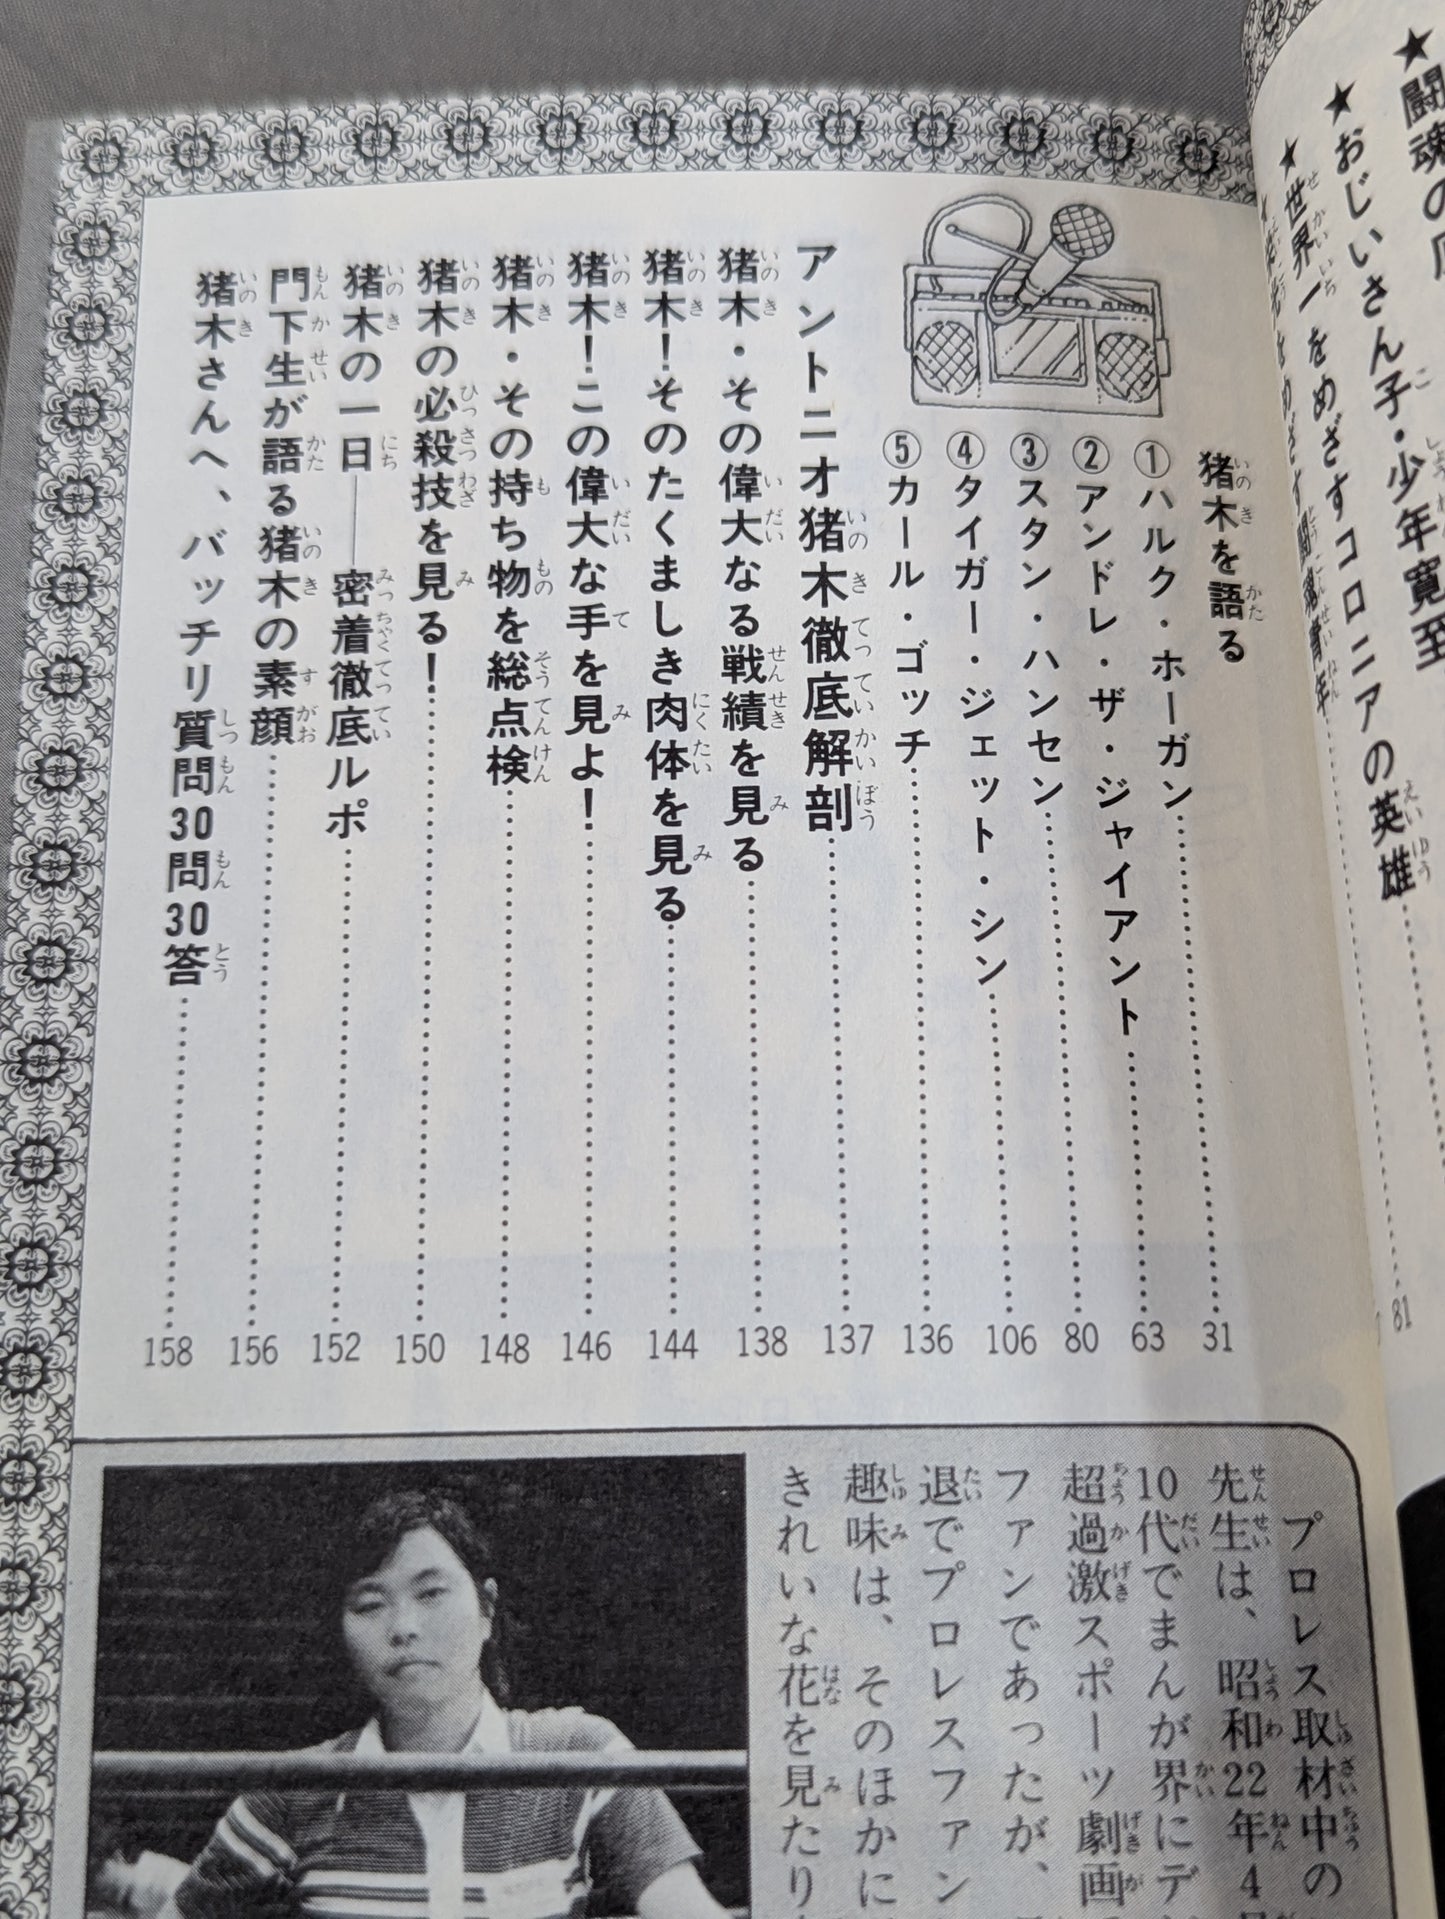 ★闘魂の
★おじいさん子・少年寛至
★世界一をめざすコロニアの英雄
81
猪木を語る
①ハルク・ホーガン……31
②アンドレ・ザ・ジャイアント……63
③スタン・ハンセン……80
④タイガー・ジェット・シン……106
⑤カール・ゴッチ……136
アントニオ猪木徹底解剖……137
猪木・その偉大なる戦績を見る……138
猪木！そのたくましき肉体を見る……144
猪木！この偉大な手を見よ！……146
猪木・その持ち物を総点検……148
猪木の必殺技を見る！……150
猪木の一日──密着徹底ルポ……152
門下生が語る猪木の素顔……156
猪木さんへ、バッチリ質問30問30答……158
プロレス取材中の
先生は、昭和22年4
10代でまんが界にデ
超過激スポーツ劇画
ファンであったが、
退でプロレスファン
趣味は、そのほかに
きれいな花を見たり